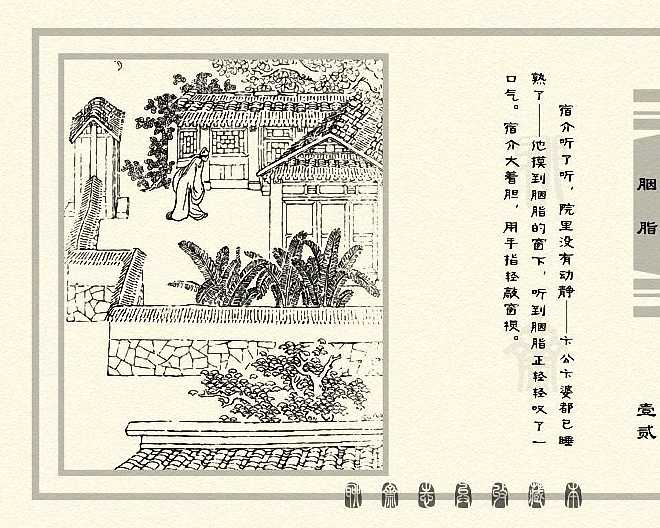 胭脂
壹贰
宿介听了听，院里没有动静——卞公卞婆都已睡
熟了——他摸到胭脂的窗下，听到胭脂正轻轻叹了一
口气。宿介大着胆，用手指轻敲窗槟。